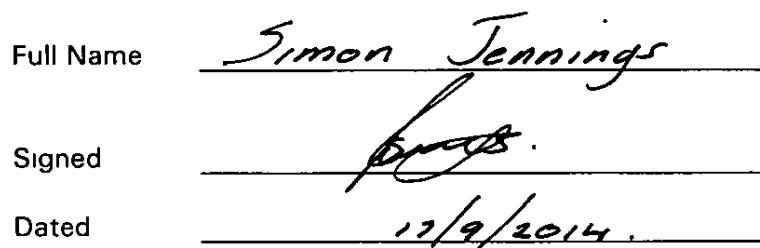 Full Name Simon Jennings
Signed
Dated 17/9/2014.